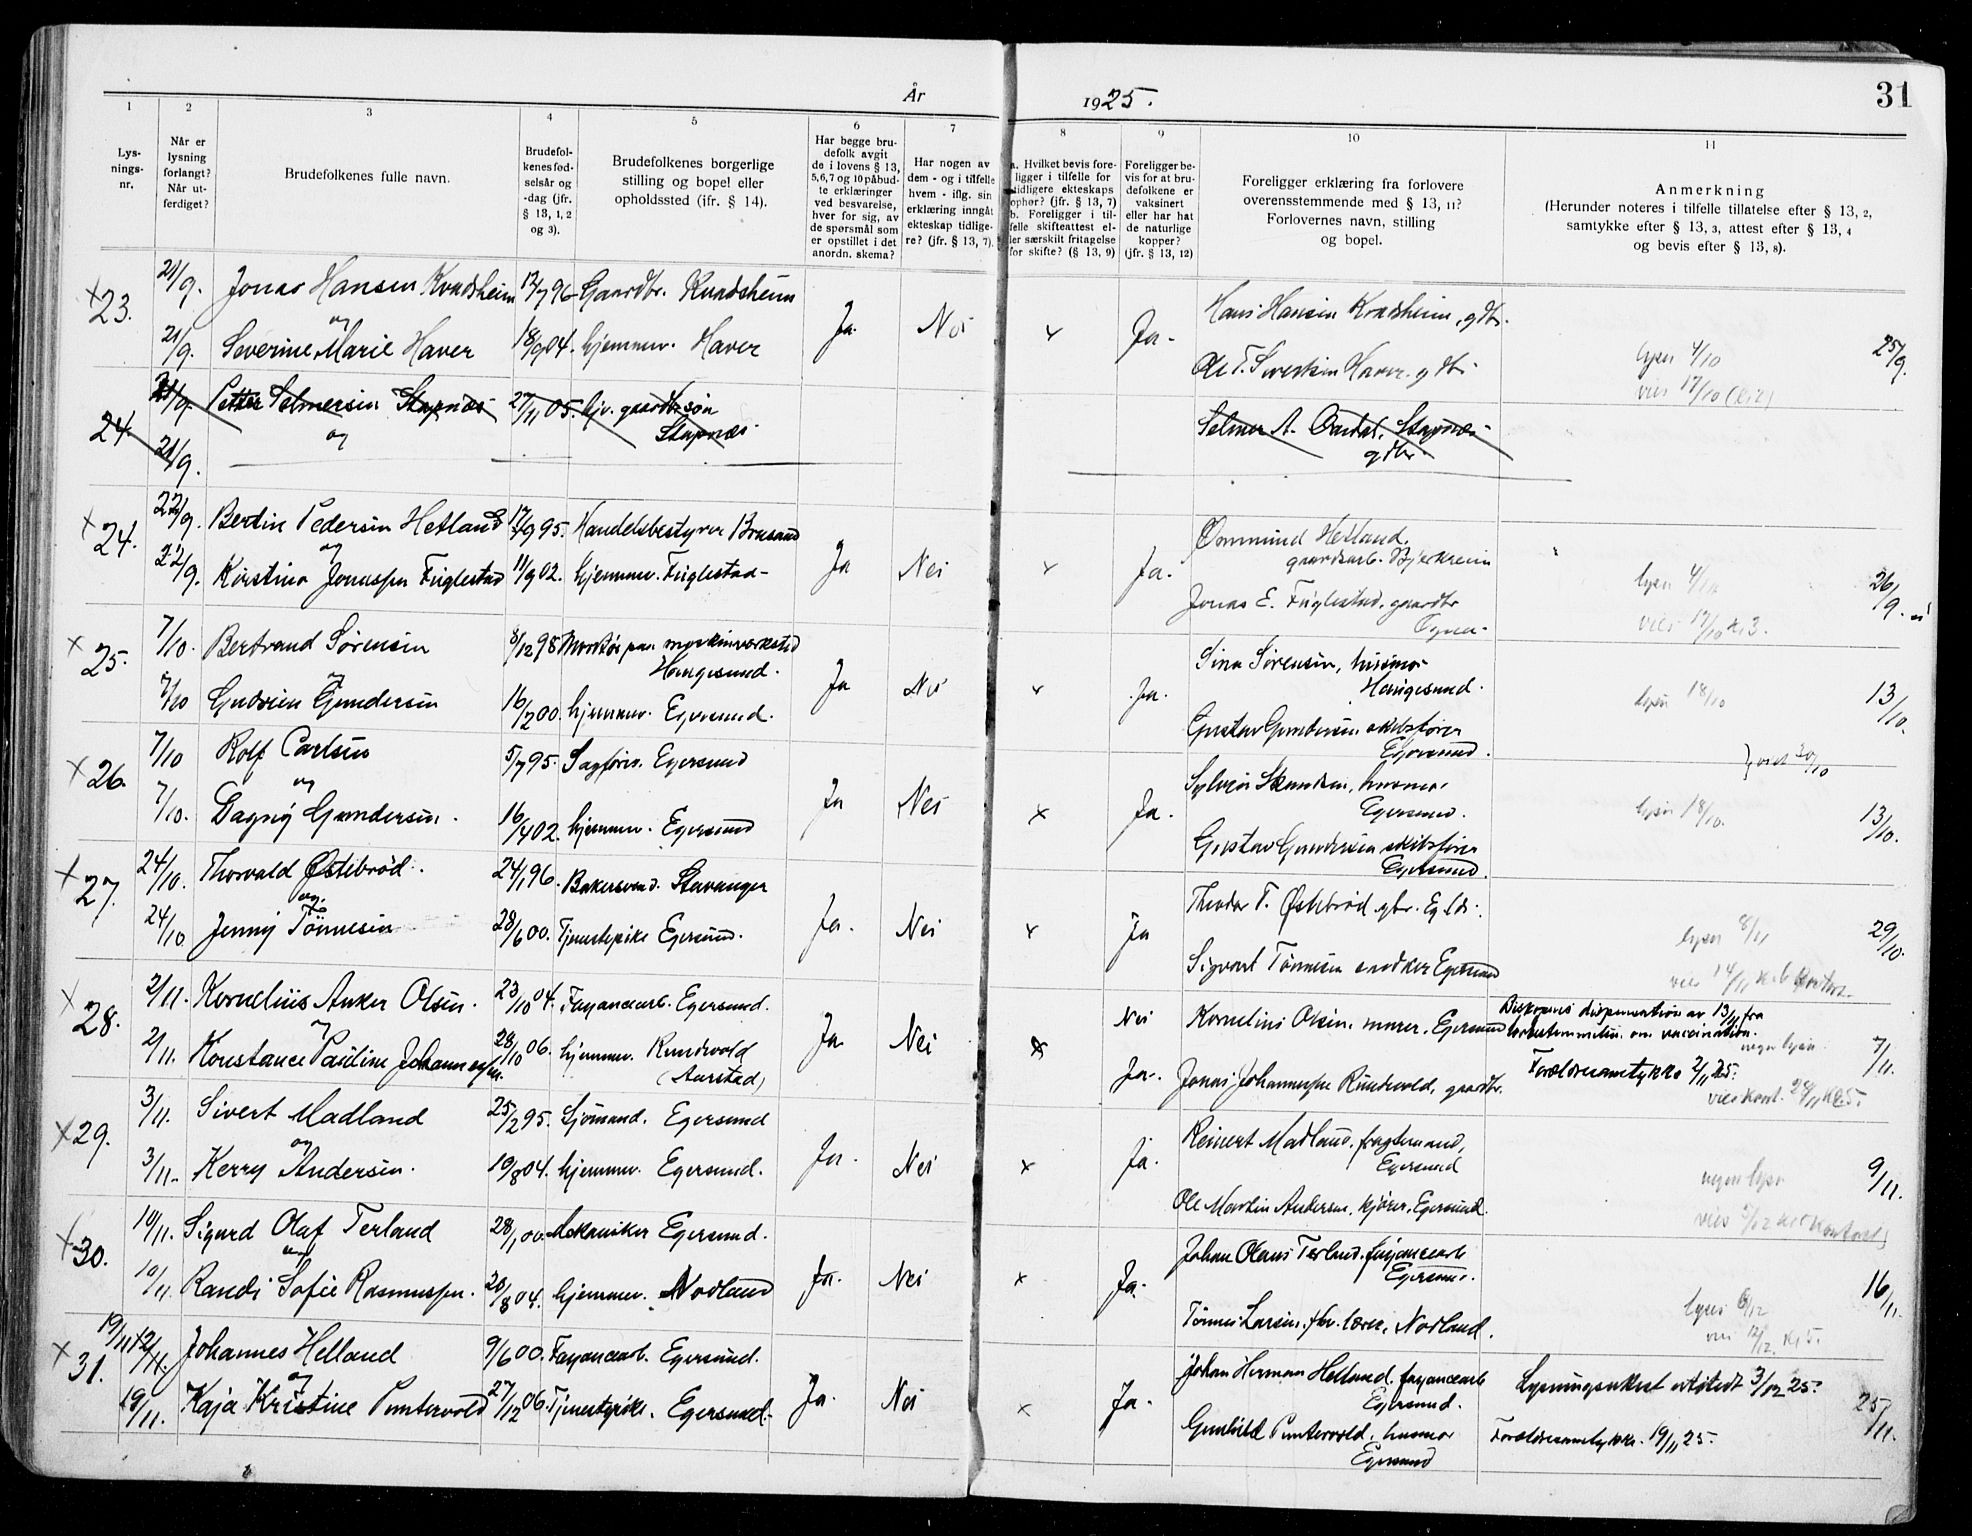 År 1925.
31
1 2 3 4 5 6 7 8 9 10 11
Lys-
nings-
nr.
Når er
lysning
forlangt?
Når ut-
ferdiget?
Brudefolkenes fulle navn.
Brudefol-
kenes fød-
selsår og
-dag (jfr.
§ 13, 1, 2
og 3).
Brudefolkenes borgerlige
stilling og bopel eller
opholdssted (ifr. § 14).
Har begge bru-
defolk avgit
de i lovens § 13,
5,6,7 og 10 påbud-
te erklæringer
ved besvarelse,
hver for sig, av
de spørsmål som
er opstillet i det
anordn. skema?
Har nogen av
dem - og i tilfelle
hvem - iflg. sin
erklæring inngåt
ekteskap tidlige-
re? (jfr. § 13, 7).
a. Hvilket bevis fore-
ligger i tilfelle for
tidligere ekteskaps
ophør? (jfr. § 13, 7)
b. Foreligger i til-
felle skifteattest el-
ler særskilt fritagelse
for skifte? (§ 13, 9)
Foreligger be-
vis for at bru-
defolkene er
vaksinert
eller har hat
de naturlige
kopper?
(jfr. § 13, 12)
Foreligger erklæring fra forlovere
overensstemmende med § 13, 11?
Forlovernes navn, stilling
og bopel.
Anmerkning
(Herunder noteres i tilfelle tillatelse efter § 13, 2,
samtykke efter § 13, 3, attest efter § 13, 4
og bevis efter § 13, 8).
x 23. 21/9. Jonas Hansen Kvadsheim 12/7 96 Gaardbr. Kvadsheim Ja. Nei x Ja. Hans Hansen Kvadsheim, gdbr.
og
21/9. Severine Marie Haver 18/9 04. hjemmev. Haver Ole T. Severtsen Haver. gdbr. lyses 4/10 25/9.
vies 17/10
24. 21/9. Petter Selmersen Stapnæs 27/11 05. hjv. gaardbrsøn
Stapnæs Selmer A. Stapnæs
gdbr
og
21/9.
x 24. 22/9. Bertin Pedersen Hetland 17/9 95. Handelsbestyrer Brusand Ja Nei x Ja. Ommund Hetland.
gaardsarb. Bjerkreim
og
22/9. Kirstine Jonassen Fuglestad 11/9 02. hjemmev. Fuglestad Jonas E. Fuglestad. gaardbr
Ogna lyses 4/10 26/9.
vies 17/10 kl 3.
x 25. 7/10. Bertrand Sørensen 8/12 98 Montør paa maskinverksted
Haugesund. Ja Nei x Ja. Sina Sørensen, husmor
Haugesund.
og
7/10 Gudrun Gundersen 16/2 00. hjemmev. Egersund. Gustav Gundersen skibsfører
Egersund. lyses 18/10 13/10.
x 26. 7/10 Rolf Carlsen 5/7 95. Sagføre. Egersund Ja Nei x Ja. husmor
Egersund. viet 30/10
og
7/10. Dagny Gundersen. 16/4 02. hjemmev. Egersund Gustav Gundersen skibsfører
Egersund. lyses 18/10. 13/10.
x 27. 24/10. Thorvald Østebrød. 24/1 96. Bakersvend. Stavanger Ja. Nei x Ja Theodor T. Østebrød gbr. Eg.lds.
og
24/10 Jenny Tønnesen 28/6 00. Tjenestepike Egersund. Sigvart Tønnesen snedker Egersund lyses 8/11 29/10.
vies 14/11 kl. 6 kontor.
x 28. 2/11. Kornelius Anker Olsen. 23/10 04. Fayancearb. Egersund. Ja. Nei x Nei Kornelius Olsen. murer, Egersund Biskopens dispensation av 13/11 fra
bestemmelsen om vaccination.
og
2/11. Konstance Pauline Johannessen. 28/10 06. hjemmev. Rundvold
(Aarstad) Ja. Jonas Johannessen Rundvold, gaardbr. Forældresamtykke 2/11 25. 7/11.
vies kont. 28/11 kl 5.
x 29. 3/11. Sivert Madland 25/2 95. Sjømand. Egersund Ja. Nei x Ja. Reinert Madland. fragtemand,
Egersund
og
3/11. Kerry Andersen. 19/8 04. hjemmev. Egersund. Ole Martin Andersen. kjører. Egersund. lyses 9/11.
vies 5/12 kontoret
x 30. 10/11. Sigurd Olaf Terland 28/1 00. Mekaniker Egersund. Ja. Nei x Ja. Johan Olaus Terland. fayancearb
Egersund.
og
10/11. Randi Sofie Rasmussen. 20/8 04. hjemmev. Nodland Tønnes Larsen. fhv. lærer. Nodland. lyses 6/12 16/11.
12/12. kl 5.
x 31. 19/11 12/11. Johannes Helland 9/6 00. Fayancearb. Egersund. Ja. Nei x Ja. Johan Herman Helland. fayancearb
Egersund. Lysningsattest utstedt 3/12 25.
og
19/11. Kaja Kristine Puntervold 27/12 06. Tjenestepike. Egersund. Gunhild Puntervold. husmor
Egersund Forældresamtykke. 19/11 25. 25/11.